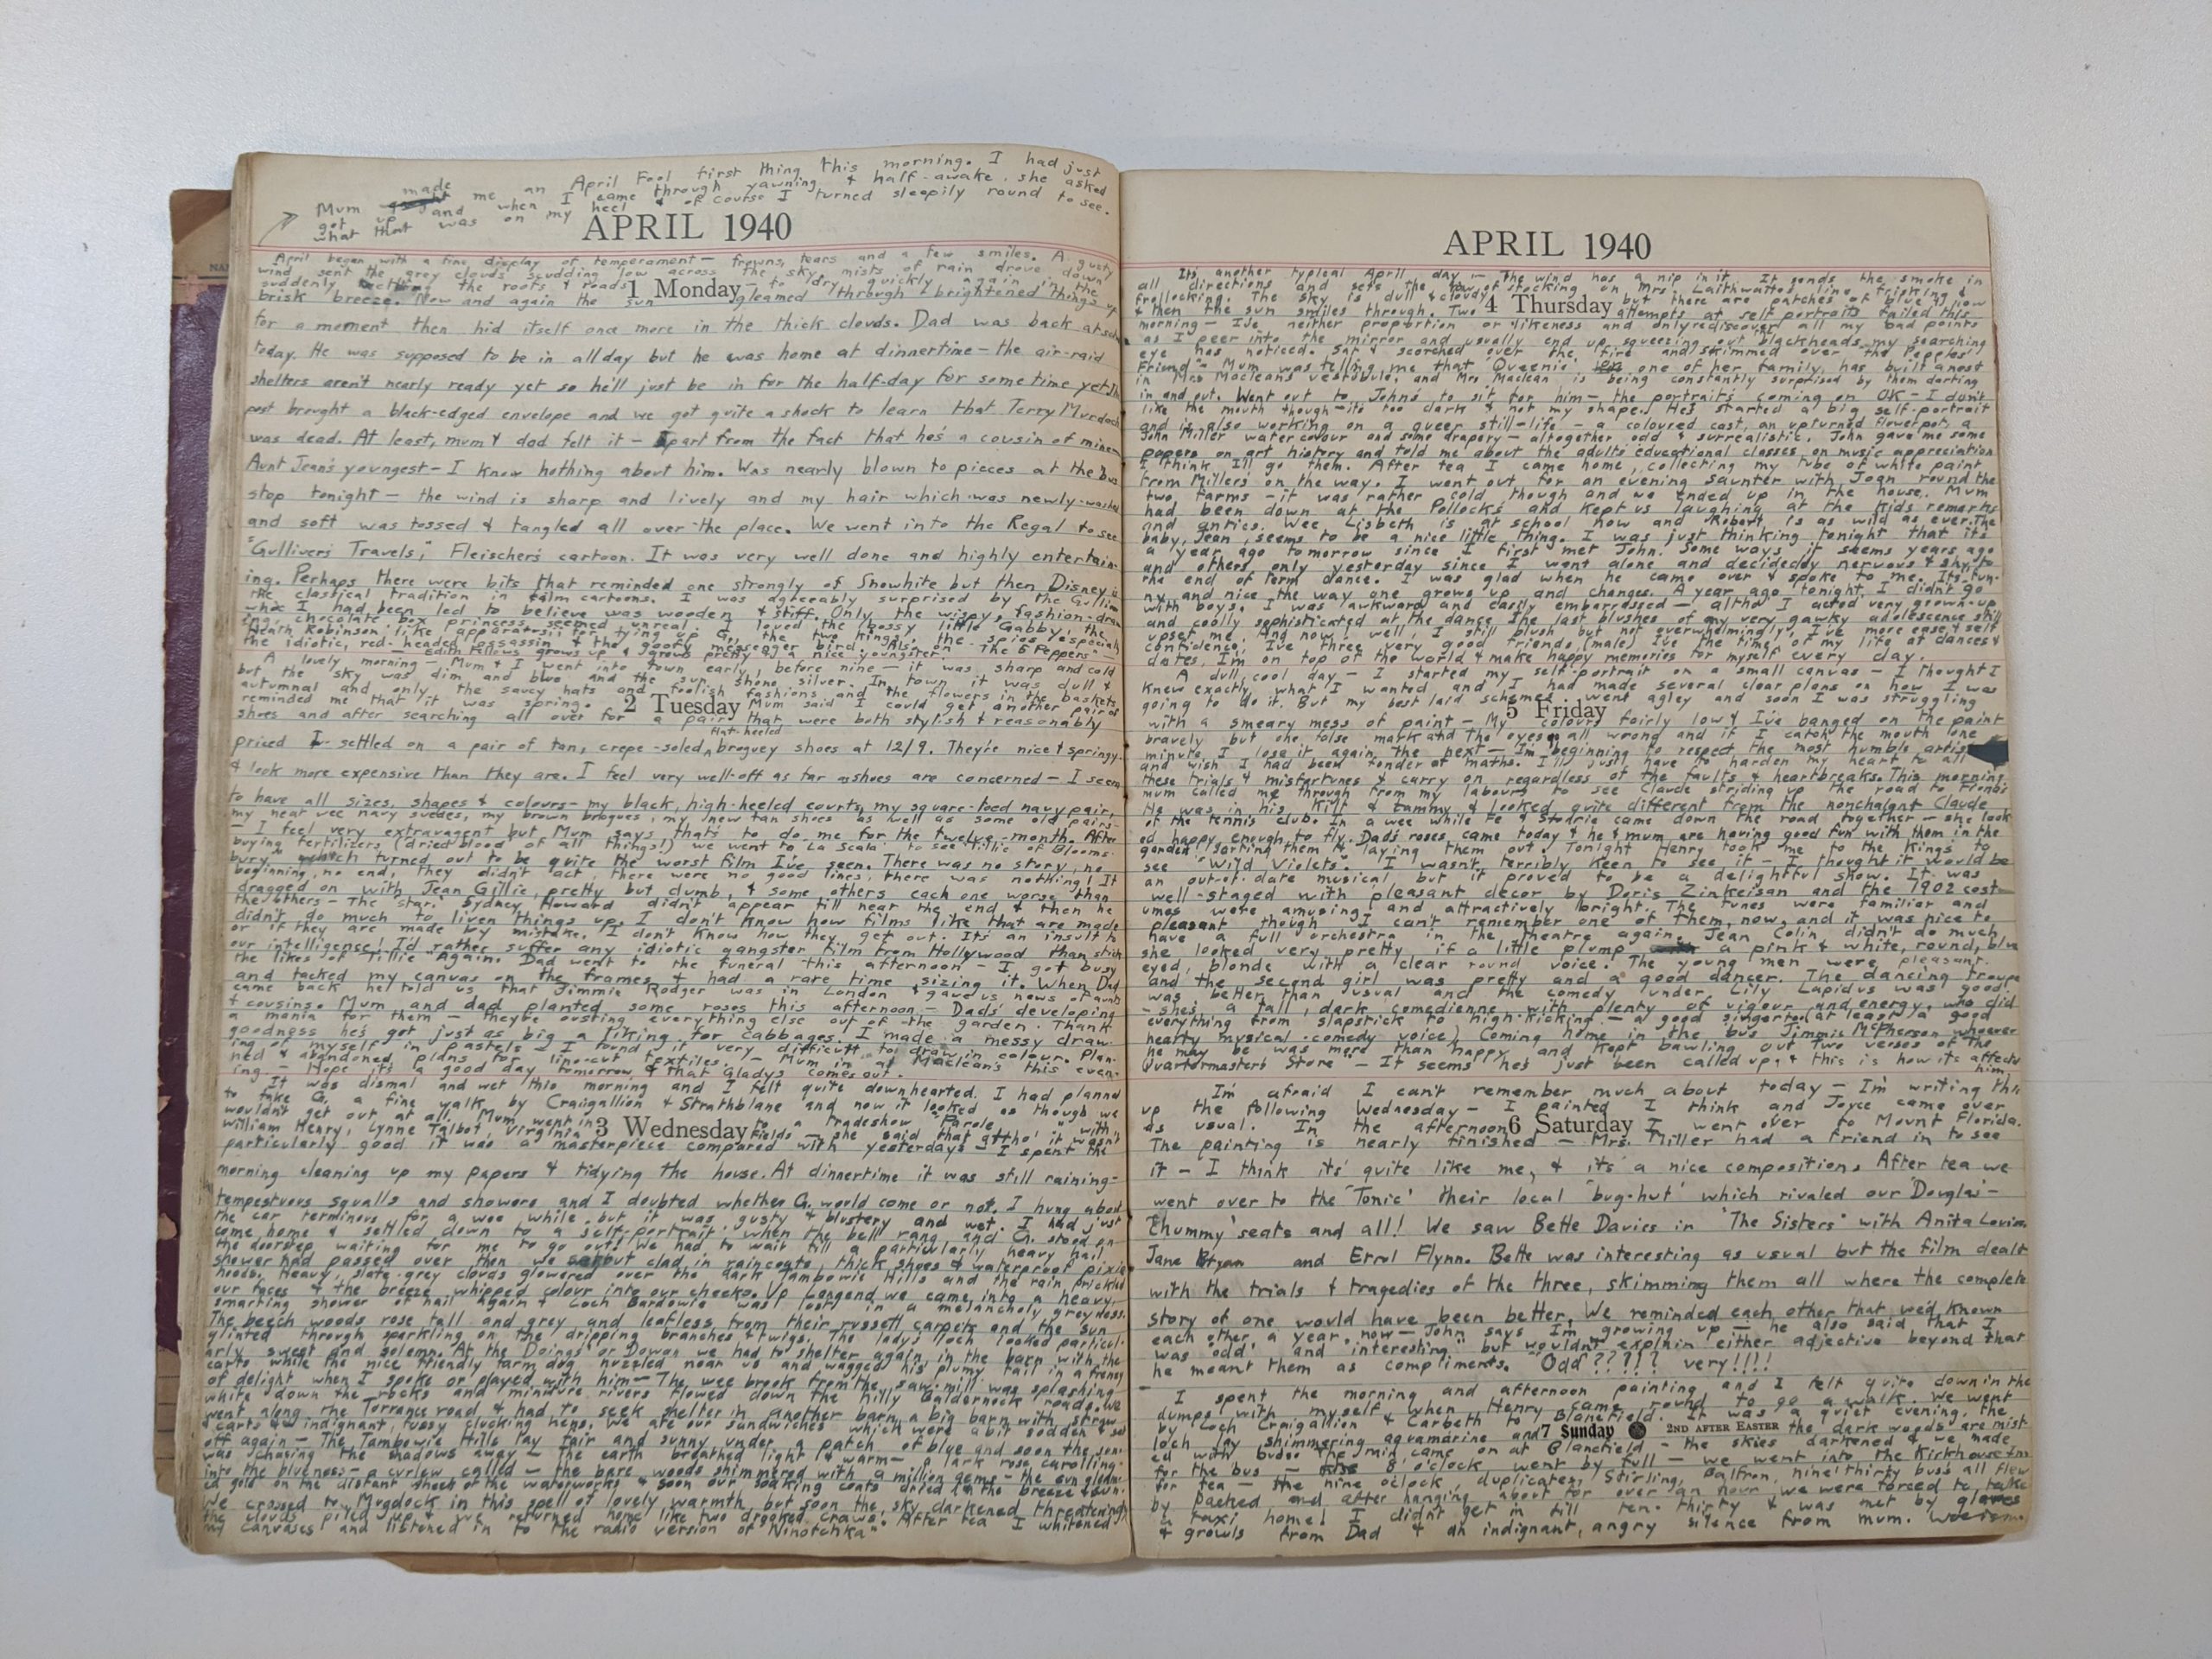 Mum made me an April Fool first thing this morning. I had just
got up and when I came through yawning & half-awake she asked
what that was on my heel & of course I turned sleepily round to see.
APRIL 1940
April began with a fine display of temperament — frowns, tears and a few smiles. A gusty
wind sent the grey clouds scudding low across the sky, mists of rain drove down
suddenly the roofs & roads — to dry quickly again in the
1 Monday
brisk breeze. Now and again the sun gleamed through & brightened things up
for a moment then hid itself once more in the thick clouds. Dad was back at school
today. He was supposed to be in all day but he was home at dinnertime — the air-raid
shelters aren't nearly ready yet so he'll just be in for the half-day for some time yet. The
post brought a black-edged envelope and we got quite a shock to learn that Terry Murdoch
was dead. At least, mum & dad felt it — apart from the fact that he's a cousin of mine —
Aunt Jean's youngest — I know nothing about him. Was nearly blown to pieces at the bus
stop tonight — the wind is sharp and lively and my hair which was newly-washed
and soft was tossed & tangled all over the place. We went into the Regal to see
"Gulliver's Travels," Fleischer's cartoon. It was very well done and highly entertain-
ing. Perhaps there were bits that reminded one strongly of Snowhite but then Disney is
the classical tradition in film cartoons. I was agreeably surprised by the Gulliver
who I had been led to believe was wooden & stiff. Only the wispy, fashion-draw
ing, chocolate box princess seemed unreal. I loved the bossy little Gabby, the
Heath Robinson like apparatus for tying up G., the two kings, the spies & especially
the idiotic, red-headed assassin & the goofy messenger bird. Also on "The 5 Peppers"
— Edith Fellows grows up & grows pretty & is a nice youngster.
A lovely morning — Mum & I went into town early, before nine — it was sharp and cold
but the sky was dim and blue and the sun shone silver. In town it was dull &
autumnal and only the saucy hats and foolish fashions and the flowers in the baskets
reminded me that it was spring. Mum said I could get another pair of
2 Tuesday
shoes and after searching all over for a pair that were both stylish & reasonably
flat-heeled
priced I settled on a pair of tan, crepe-soled, broguey shoes at 12/9. They're nice & springy
& look more expensive than they are. I feel very well-off as far as shoes are concerned — I seem
to have all sizes, shapes & colours — my black, high-heeled courts, my square-toed navy pair,
my neat wee navy suedes, my brown brogues, my new tan shoes as well as some old pairs
— I feel very extravagent but Mum says that's to do me for the twelve-month. After
buying fertilizers (dried blood of all things!) we went to La Scala to see "Tillie of Blooms-
bury" which turned out to be quite the worst film I've seen. There was no story, no
beginning, no end, they didn't act, there were no good lines, there was nothing! It
dragged on with Jean Gillie, pretty but dumb, & some others each one worse than
the others — The 'star' Sydney Howard didn't appear till near the end & then he
didn't do much to liven things up. I don't know how films like that are made
or if they are made by mistake. I don't know how they get out. It's an insult to
our intelligence! I'd rather suffer any idiotic gangster film from Hollywood than stick
the likes of "Tillie" again. Dad went to the funeral this afternoon — I got busy
and tacked my canvas on the frames & had a rare time sizing it. When Dad
came back he told us that Jimmie Rodger was in London & gave us news of aunts
& cousins. Mum and dad planted some roses this afternoon — Dad's developing
a mania for them — they're ousting everything else out of the garden. Thank
goodness he's got just as big a liking for cabbages. I made a messy draw-
ing of myself in pastels — I found it very difficult to draw in colour. Plan-
ned & abandoned plans for lino-cut textiles. — Mum in at Maclean's this even-
ing. — Hope it's a good day tomorrow & that Gladys comes out.
It was dismal and wet this morning and I felt quite downhearted. I had planned
to take G. a fine walk by Craigallion & Strathblane and now it looked as though we
wouldn't get out at all. Mum went in to a tradeshow "Parole" with
William Henry, Lynne Talbot, Virginia Fields — she said that altho' it wasn't
3 Wednesday
particularly good it was a masterpiece compared with yesterday's — I spent the
morning cleaning up my papers & tidying the house. At dinnertime it was still raining —
tempestuous squalls and showers and I doubted whether G. would come or not. I hung about
the car terminus for a wee while but it was gusty & blustery and wet. I had just
come home & settled down to a self-portrait when the bell rang, and G. stood on
the doorstep waiting for me to go out! We had to wait till a particularly heavy hail
shower had passed over then we set out clad in raincoats, thick shoes & waterproof pixie
hoods. Heavy, slate-grey clouds glowered over the dark Tambowie Hills and the rain prickled
our faces & the breeze whipped colour into our cheeks. Up Longend we came into a heavy,
smarting shower of hail again & Loch Bardowie was lost in a melancholy greyness.
The beech woods rose tall and grey and leafless from their russet carpets and the sun
glinted through sparkling on the dripping branches & twigs. The lady's loch looked particul-
arly sweet and solemn. At the Doings or Dowan we had to shelter again in the barn with the
carts while the nice friendly farm dog nuzzled near us and wagged his plumy tail in a frenzy
of delight when I spoke or played with him — The wee brook from the saw-mill was splashing
white down the rocks and miniture rivers flowed down the hilly Baldernock roads. We
went along the Torrance road & had to seek shelter in another barn, a big barn with straw
& carts & indignant, fussy clucking hens. We ate our sandwiches which were a bit sodden & set
off again — The Tambowie Hills lay fair and sunny under a patch of blue and soon the sun
was chasing the shadows away — the earth breathed light & warm — a lark rose carolling
into the blueness — a curlew called — the bare woods shimmered with a million gems — the sun gleam-
ed gold on the distant sheet of the waterworks & soon our soaking coats dried in the breeze & sun.
We crossed to Mugdock in this spell of lovely warmth but soon the sky darkened threateningly
the clouds piled up & we returned home like two drooked craws. After tea I whitened
my canvases and listened in to the radio version of "Ninotchka".
APRIL 1940
It's another typical April day — the wind has a nip in it. It sends the smoke in
all directions and sets the row of stocking on Mrs. Laithwaite's line frisking &
frollocking. The sky is dull & cloudy but there are patches of blue & now
& then the sun smiles through. Two attempts at self portraits failed this
4 Thursday
morning — I've neither proportion or likeness and only rediscover all my bad points
as I peer into the mirror and usually end up squeezing out blackheads my searching
eye has noticed. Sat & scorched over the fire and skimmed over the "Pepples'
Friend" — Mum was telling me that Queenie, one of her family, has built a nest
in Mrs Maclean's vestibule, and Mrs. Maclean is being constantly surprised by them darting
in and out. Went out to John's to sit for him — the portrait's coming on OK — I don't
like the mouth though — it's too dark & not my shape. He's started a big self-portrait
and is also working on a queer still-life — a coloured cast, an upturned flowerpot, a
John Miller watercolour and some drapery — altogether odd & surrealistic. John gave me some
papers on art history and told me about the adults educational classes on music appreciation
I think I'll go them. After tea I came home, collecting my tube of white paint
from Miller's on the way. I went out for an evening saunter with Joan round the
two farms — it was rather cold though and we ended up in the house. Mum
had been down at the Pollock's and kept us laughing at the kids remarks
and antics. Wee Lisbeth is at school now and Robert is as wild as ever. The
baby, Jean, seems to be a nice little thing. I was just thinking tonight that it's
a year ago tomorrow since I first met John. Some ways it seems years ago
and others only yesterday since I went alone and decidedly nervous & shy to
the end of term dance. I was glad when he came over & spoke to me. It's fun-
ny and nice the way one grows up and changes. A year ago tonight, I didn't go
with boys. I was awkward and easily embarrassed — altho' I acted very grown-up
and coolly sophisticated at the dance. The last blushes of my very gawky adolescence still
upset me. And now — well, I still blush but not overwhelmingly, I've more ease & self
confidence, I've three very good friends, (male) I've the time of my life at dances &
dates, I'm on top of the world & make happy memories for myself every day.
A dull, cool day — I started my self-portrait on a small canvas — I thought I
knew exactly what I wanted and I had made several clear plans on how I was
going to do it. But my best laid schemes went agley and soon I was struggling
5 Friday
with a smeary mess of paint — My colours fairly low & I've banged on the paint
bravely but one false mark and the eyes all wrong and if I catch the mouth one
minute I lose it again the next — I'm beginning to respect the most humble artist
and wish I had been fonder of maths. I'll just have to harden my heart to all
these trials & misfortunes & carry on regardless of the faults & heartbreaks. This morning
mum called me through from my labours to see Claude striding up the road to
He was in his kilt & tammy & looked quite different from the nonchalant Claude
of the tennis club. In a wee while he & came down the road together — she look
ed happy enough to fly. Dad's roses came today & he & mum are having good fun with them in the
garden sorting them & laying them out. Tonight Henry took me to the King's to
see "Wild Violets". I wasn't terribly keen to see it — I thought it would be
an out-of-date musical but it proved to be a delightful show. It was
well-staged with pleasant decor by Doris Zinkeisan and the 1902 cost-
umes were amusing and attractively bright. The tunes were familiar and
pleasant though I can't remember one of them, now, and it was nice to
have a full orchestra in the theatre again. Jean Colin didn't do much
she looked very pretty if a little plump — a pink & white, round, blue
eyed, blonde with a clear round voice. The young men were pleasant
and the second girl was pretty and a good dancer. The dancing troupe
was better than usual and the comedy under Lily Lapidus was good
— she's a tall, dark comedienne with plenty of vigour and energy, who did
everything from slapstick to high-kicking — a good singer too (at least a good
hearty musical-comedy voice) Coming home in the bus Jimmie McPherson whoever
he may be was more than happy and kept bawling out two verses of the
Quartermaster's Store — It seems he's just been called up & this is how its affects
him
I'm afraid I can't remember much about today — I'm writing this
up the following Wednesday — I painted I think and Joyce came over
as usual. In the afternoon I went over to Mount Florida.
6 Saturday
The painting is nearly finished — Mrs. Miller had a friend in to see
it — I think its quite like me, & its a nice composition. After tea we
went over to the 'Tonic' their local 'bug-hut' which rivaled our 'Douglas' —
'Chummy' seats and all! We saw Bette Davies in "The Sisters" with Anita Louise
Jane Bryan and Errol Flynn. Bette was interesting as usual but the film dealt
with the trials & tragedies of the three, skimming them all where the complete
story of one would have been better. We reminded each other that we'd known
each other a year now — John says I'm growing up — he also said that I
was "odd" and "interesting" but wouldn't explain either adjective beyond that
he meant them as compliments. "Odd"????!? very!!!!
I spent the morning and afternoon painting and I felt quite down in the
dumps with myself when Henry came round to go a walk. We went
by Loch Craigallion & Carbeth to Blanefield. It was a quiet evening, the
loch lay shimmering aquamarine and the dark woods are mist-
7 Sunday 2ND AFTER EASTER
ed with buds. The rain came on at Blanefield — the skies darkened & we made
for the bus — 8 o'clock went by full — we went into the Kirkhouse Inn
for tea — the nine o'clock, duplicates, Stirling, Balfron, nine thirty buses all flew
by packed and after hanging about for over an hour we were forced to take
a taxi home! I didn't get in till ten-thirty & was met by glares
& growls from Dad & an indignant, angry silence from mum.